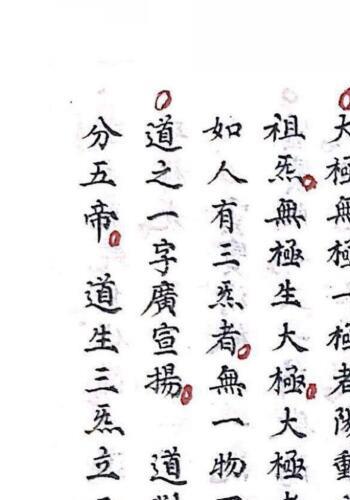 大極無極一極者陽動
祖炁無極生大極大極
如人有三炁者無一物
道之一字廣宣揚 道
分五帝 道生三炁立